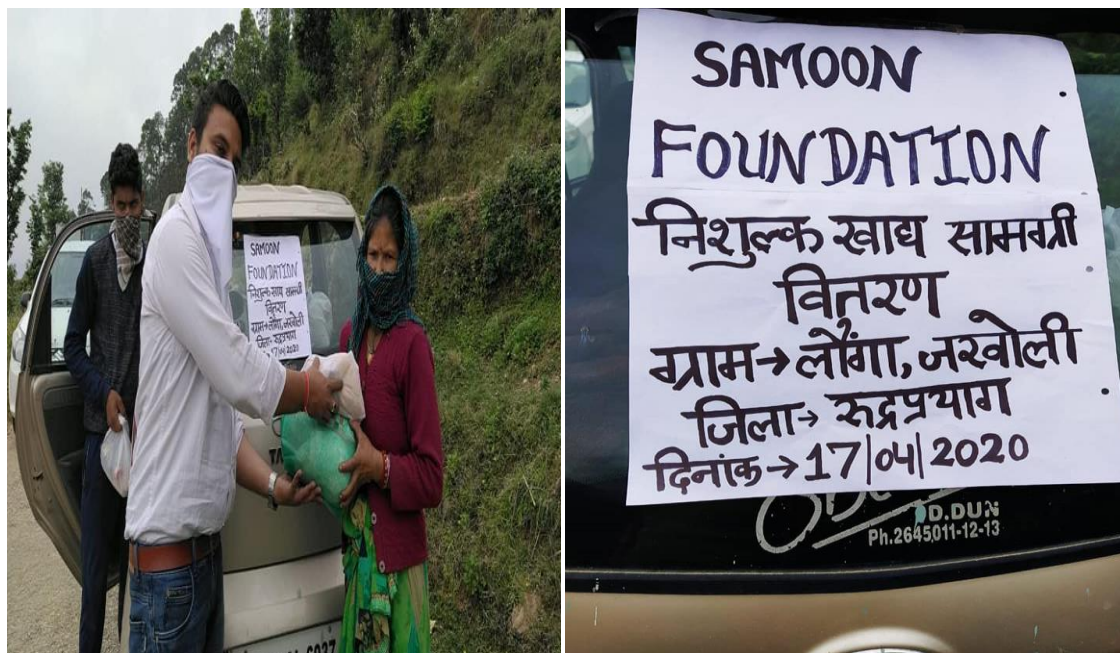 SAMOON
FOUNDATION
निशुल्क खाद्य सामग्री
वितरण
ग्राम→ लौंगा, जखोली
जिला→ रूद्रप्रयाग
दिनांक→ 17/04/2020
SAMOON
FOUNDATION
निशुल्क खाद्य सामग्री
वितरण
ग्राम→ लौंगा, जखोली
जिला→ रूद्रप्रयाग
दिनांक→ 17|04|2020
D.DUN
Ph.2645011-12-13